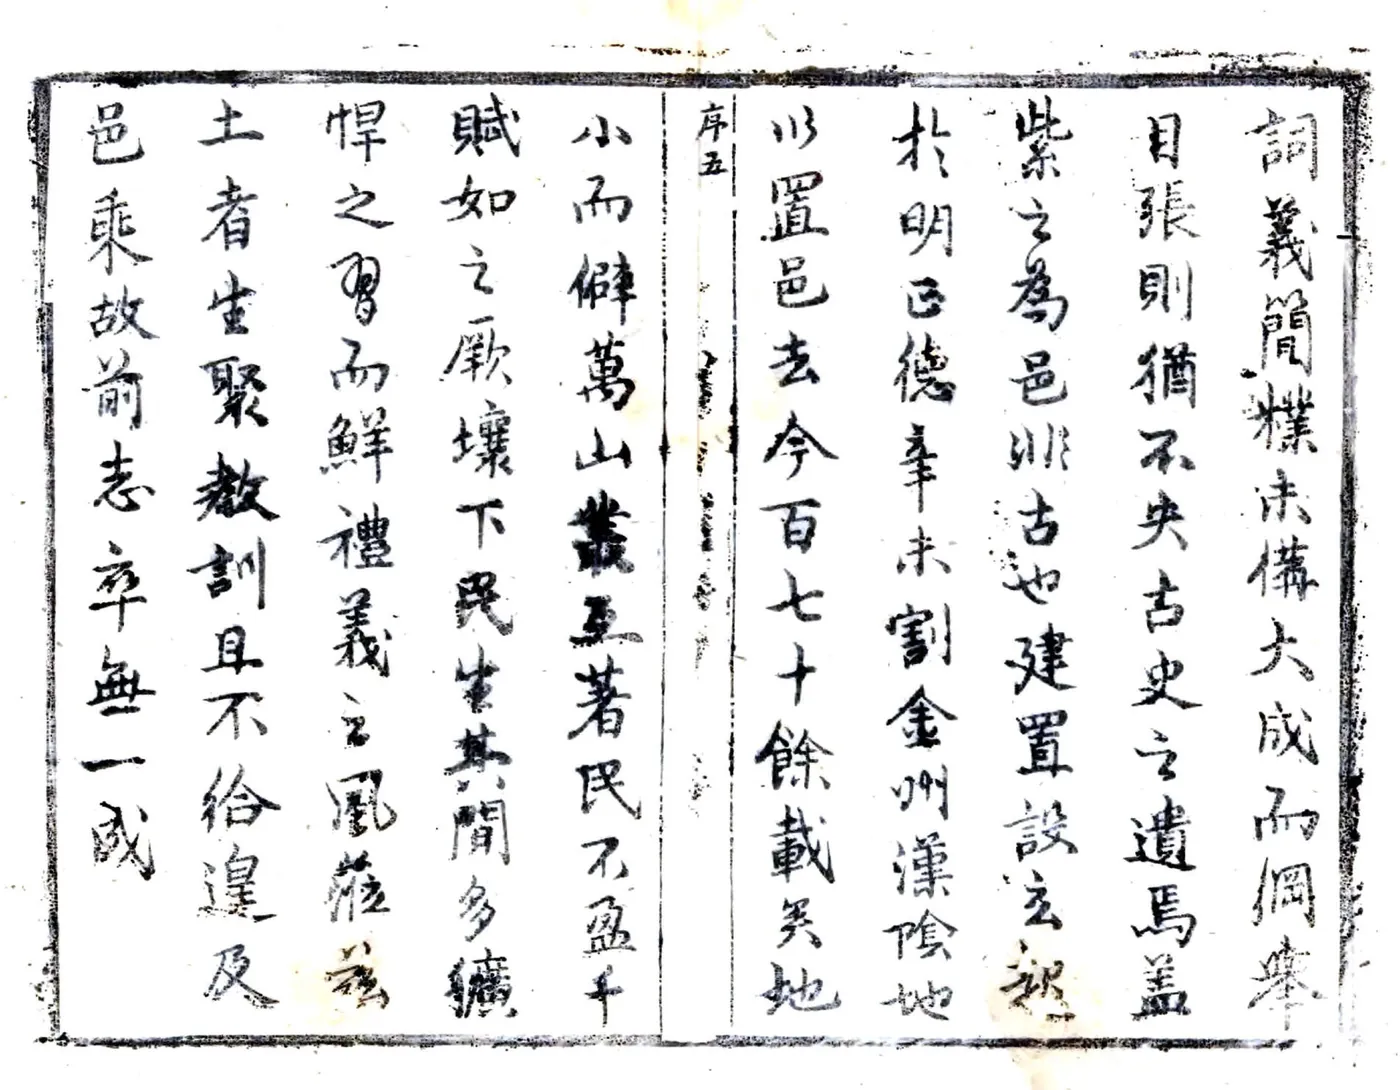 詞義簡樸未備大成而綱舉
目張則猶不失古史之遺焉蓋
紫之為邑非古也建置設立起
於明正德辛未割金州漢陰地
以置邑去今百七十餘載矣地
序五
小而僻萬山叢互著民不盈千
賦如之厥壤下民生其間多獷
悍之習而鮮禮義之風蒞茲
土者生聚教訓且不給遑及
邑乘故前志卒無一成